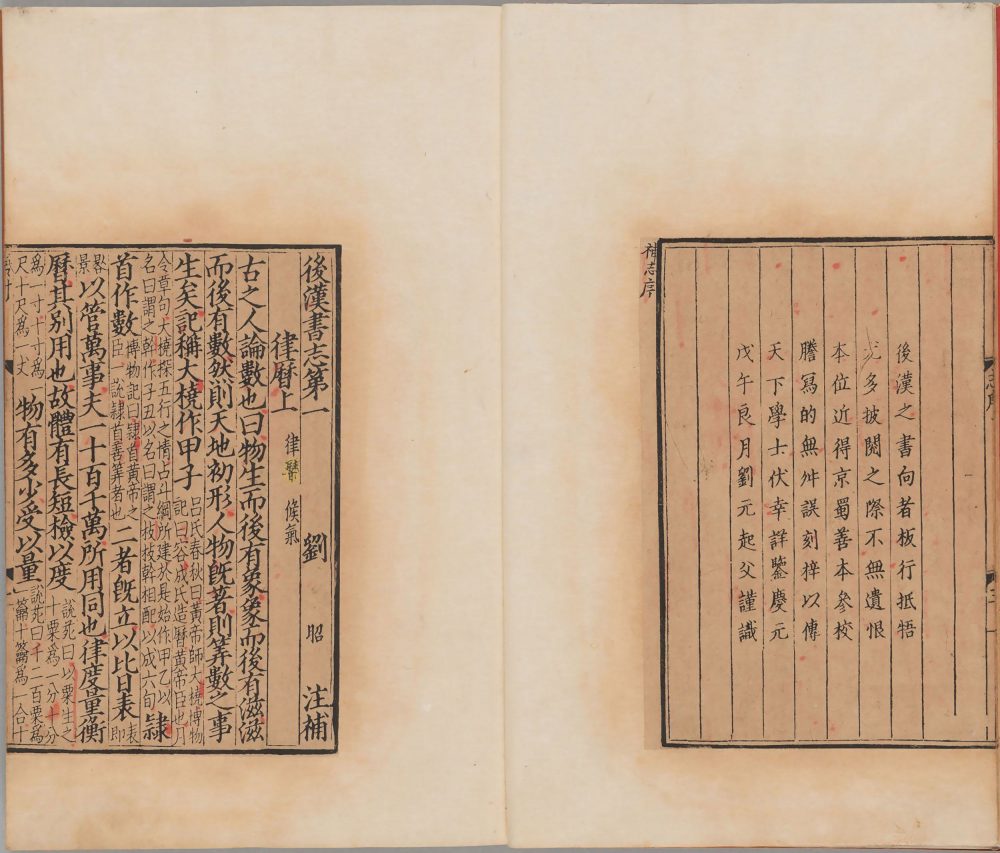 後漢之書向者板行抵牾
尤多披閱之際不無遺恨
本位近得京蜀善本參校
謄寫的無舛誤刻梓以傳
天下學士伏幸詳鑒慶元
戊午良月劉元起父謹識
補志序
後漢書志第一
律曆上 律準 候氣 劉昭 注補
古之人論數也曰物生而後有象象而後有滋滋
而後有數然則天地初形人物旣著則筭數之事
生矣記稱大橈作甲子 呂氏春秋曰黃帝師大橈博物
記曰容成氏造曆黃帝臣也月
令章句大橈探五行之情占斗綱所建於是始作甲乙以
名日謂之幹作子丑以名曰謂之枝枝幹相配以成六旬 隸
首作數 博物記曰隸首黃帝之
臣一說隸首善筭者也 二者旣立以比日表 表
即
晷
景 以管萬事夫一十百千萬所用同也律度量衡
曆其別用也故體有長短檢以度 說苑曰以粟生之
十粟爲一分十分
爲一寸十寸爲一
尺十尺爲一丈 物有多少受以量 說苑曰千二百粟爲
籥十籥爲一合十